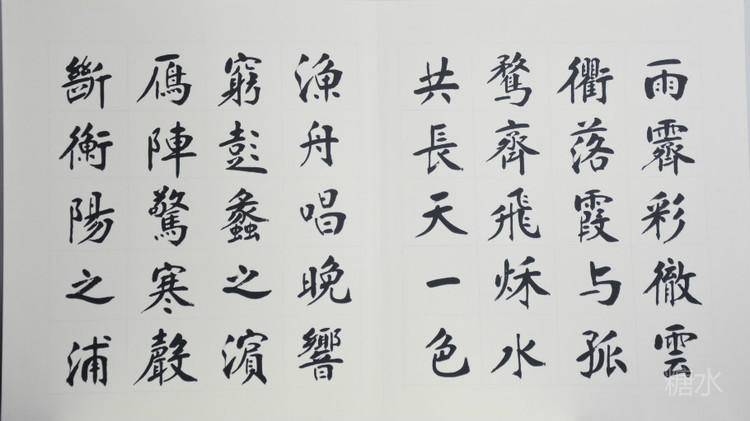 雨霽彩徹雲
衢落霞与孤
鶩齊飛秌水
共長天一色
漁舟唱晚響
窮彭蠡之濱
鴈陣驚寒聲
斷衡陽之浦
糖水